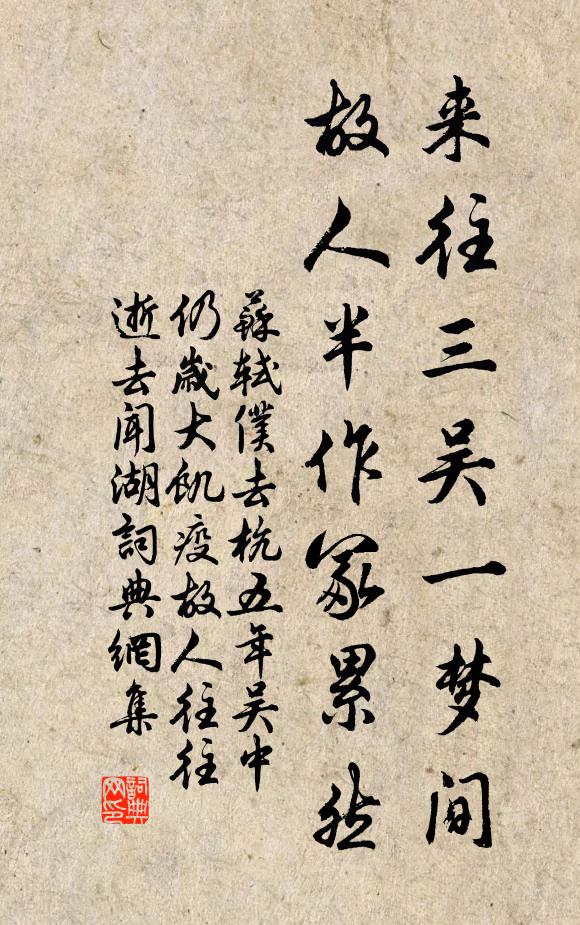 来往三吴一梦间
故人半作冢累然
蘇轼僕去杭五年吴中
仍歲大饥疫故人往往
逝去闻湖詞典網集
詞典
网印